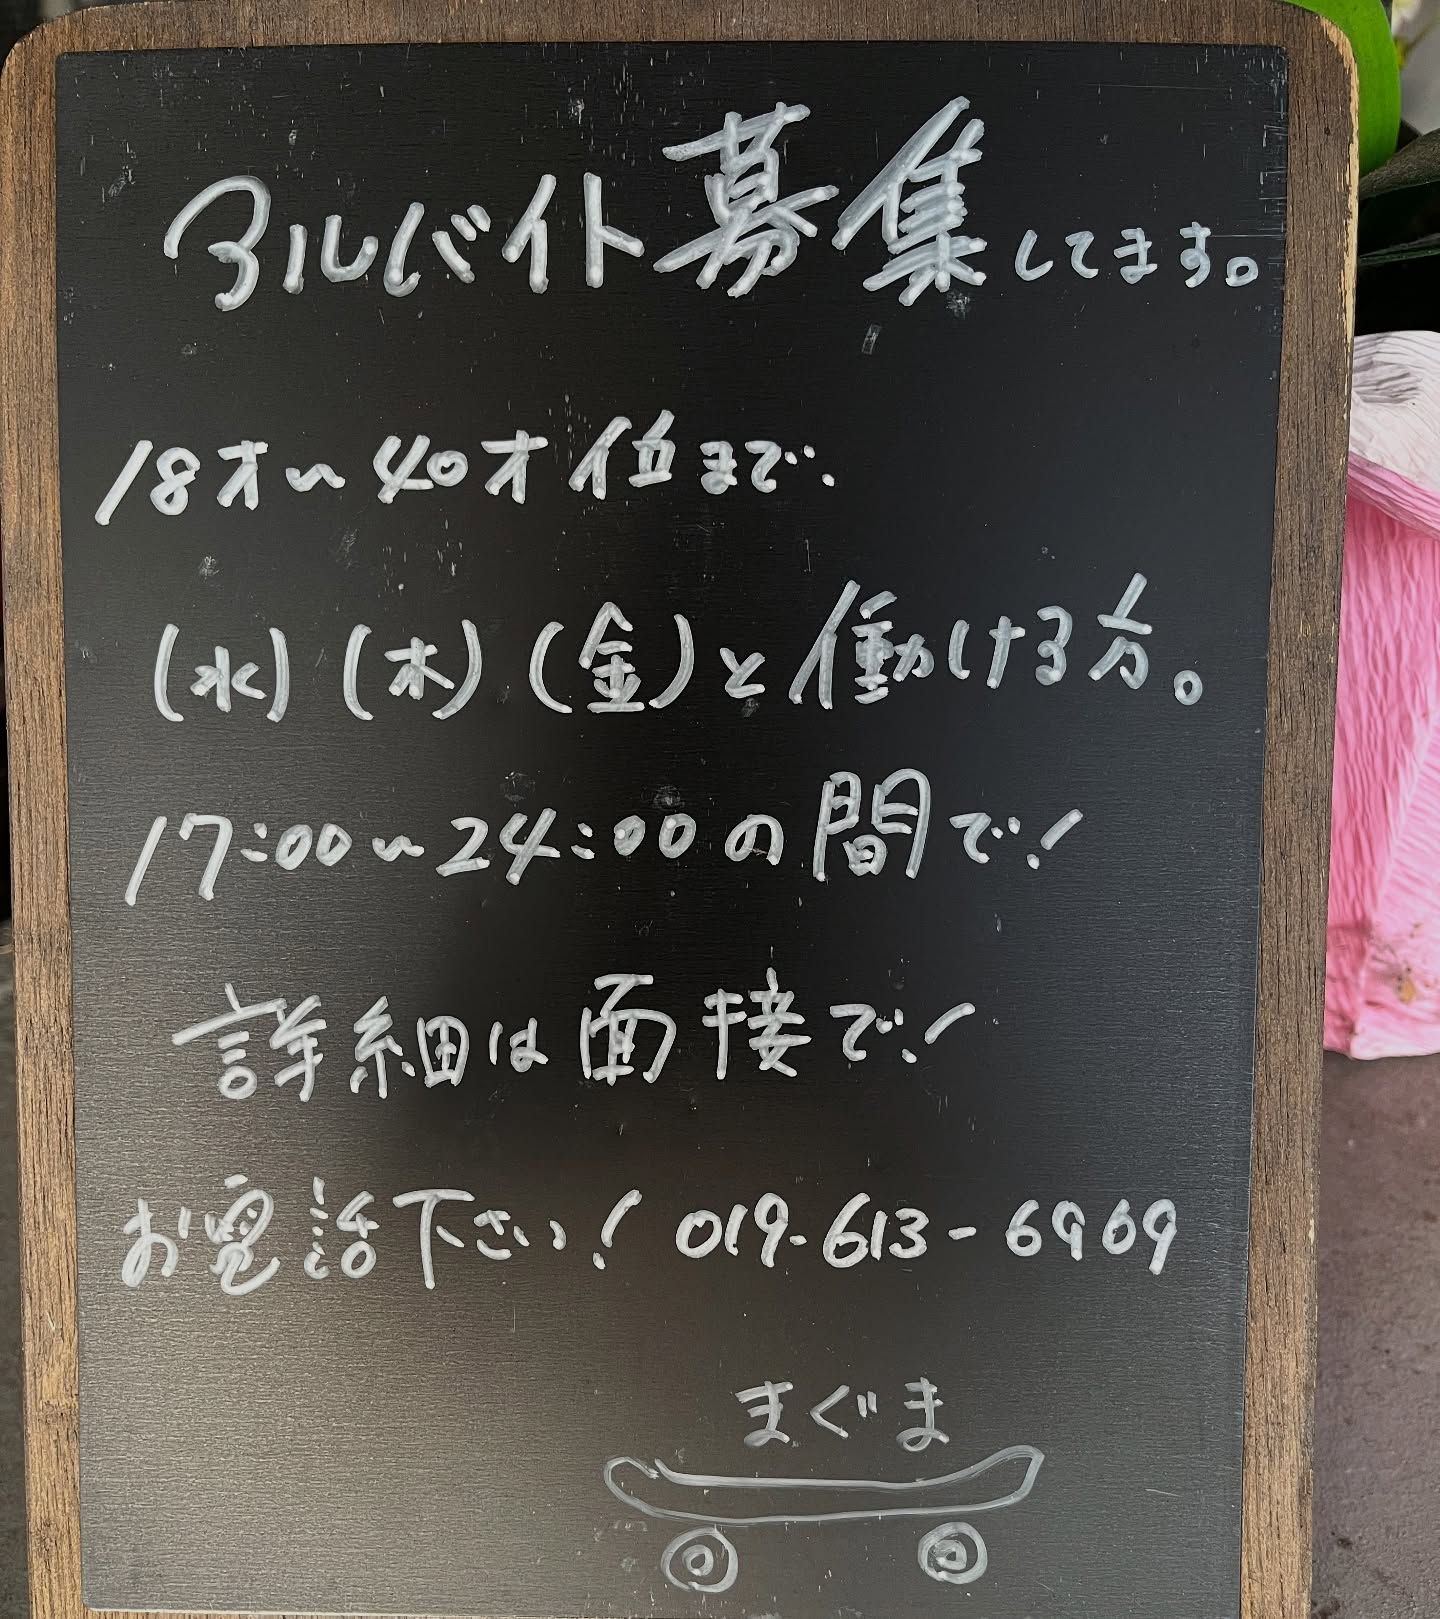 アルバイト募集してます。
18才〜40才位まで.
(水)(木)(金)と働ける方。
17:00〜24:00の間で!
詳細は面接で!
お電話下さい! 019-613-6969
まぐま